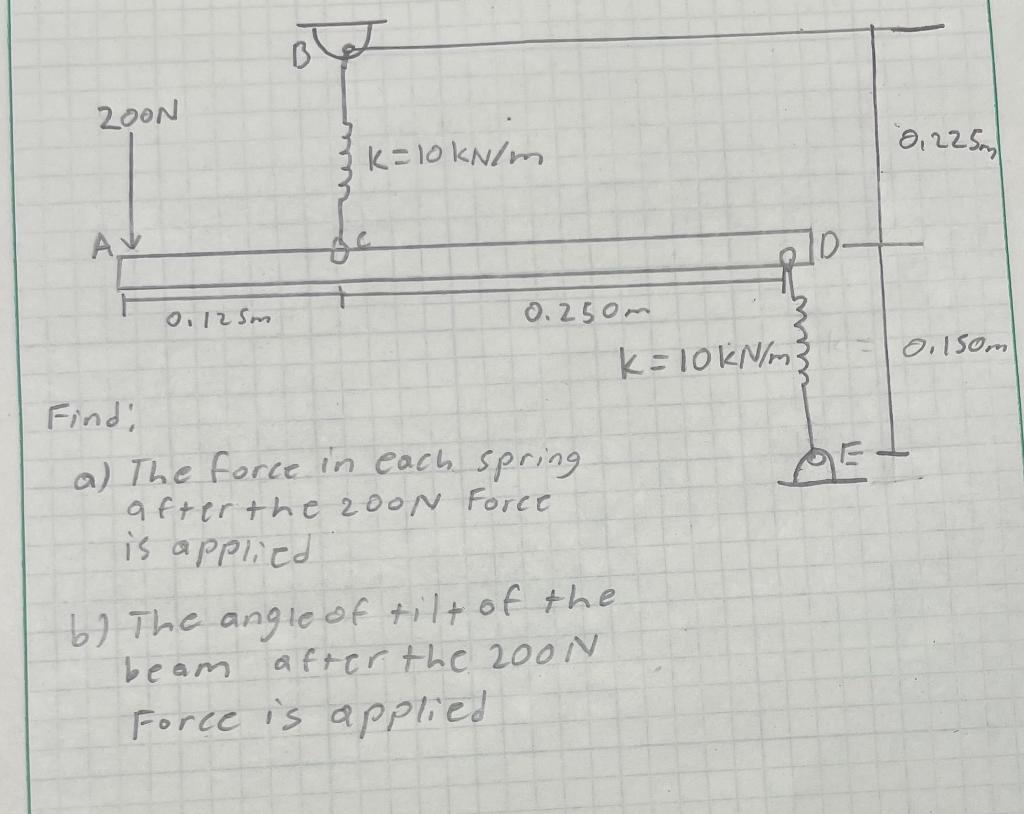 B
200N
K=10 KN/m
0.225m
A
C
D
0.125m
0.250m
K=10KN/m
0.150m
E
Find:
a) The force in each spring
after the 200N Force
is applied
b) The angle of tilt of the
beam after the 200N
Force is applied